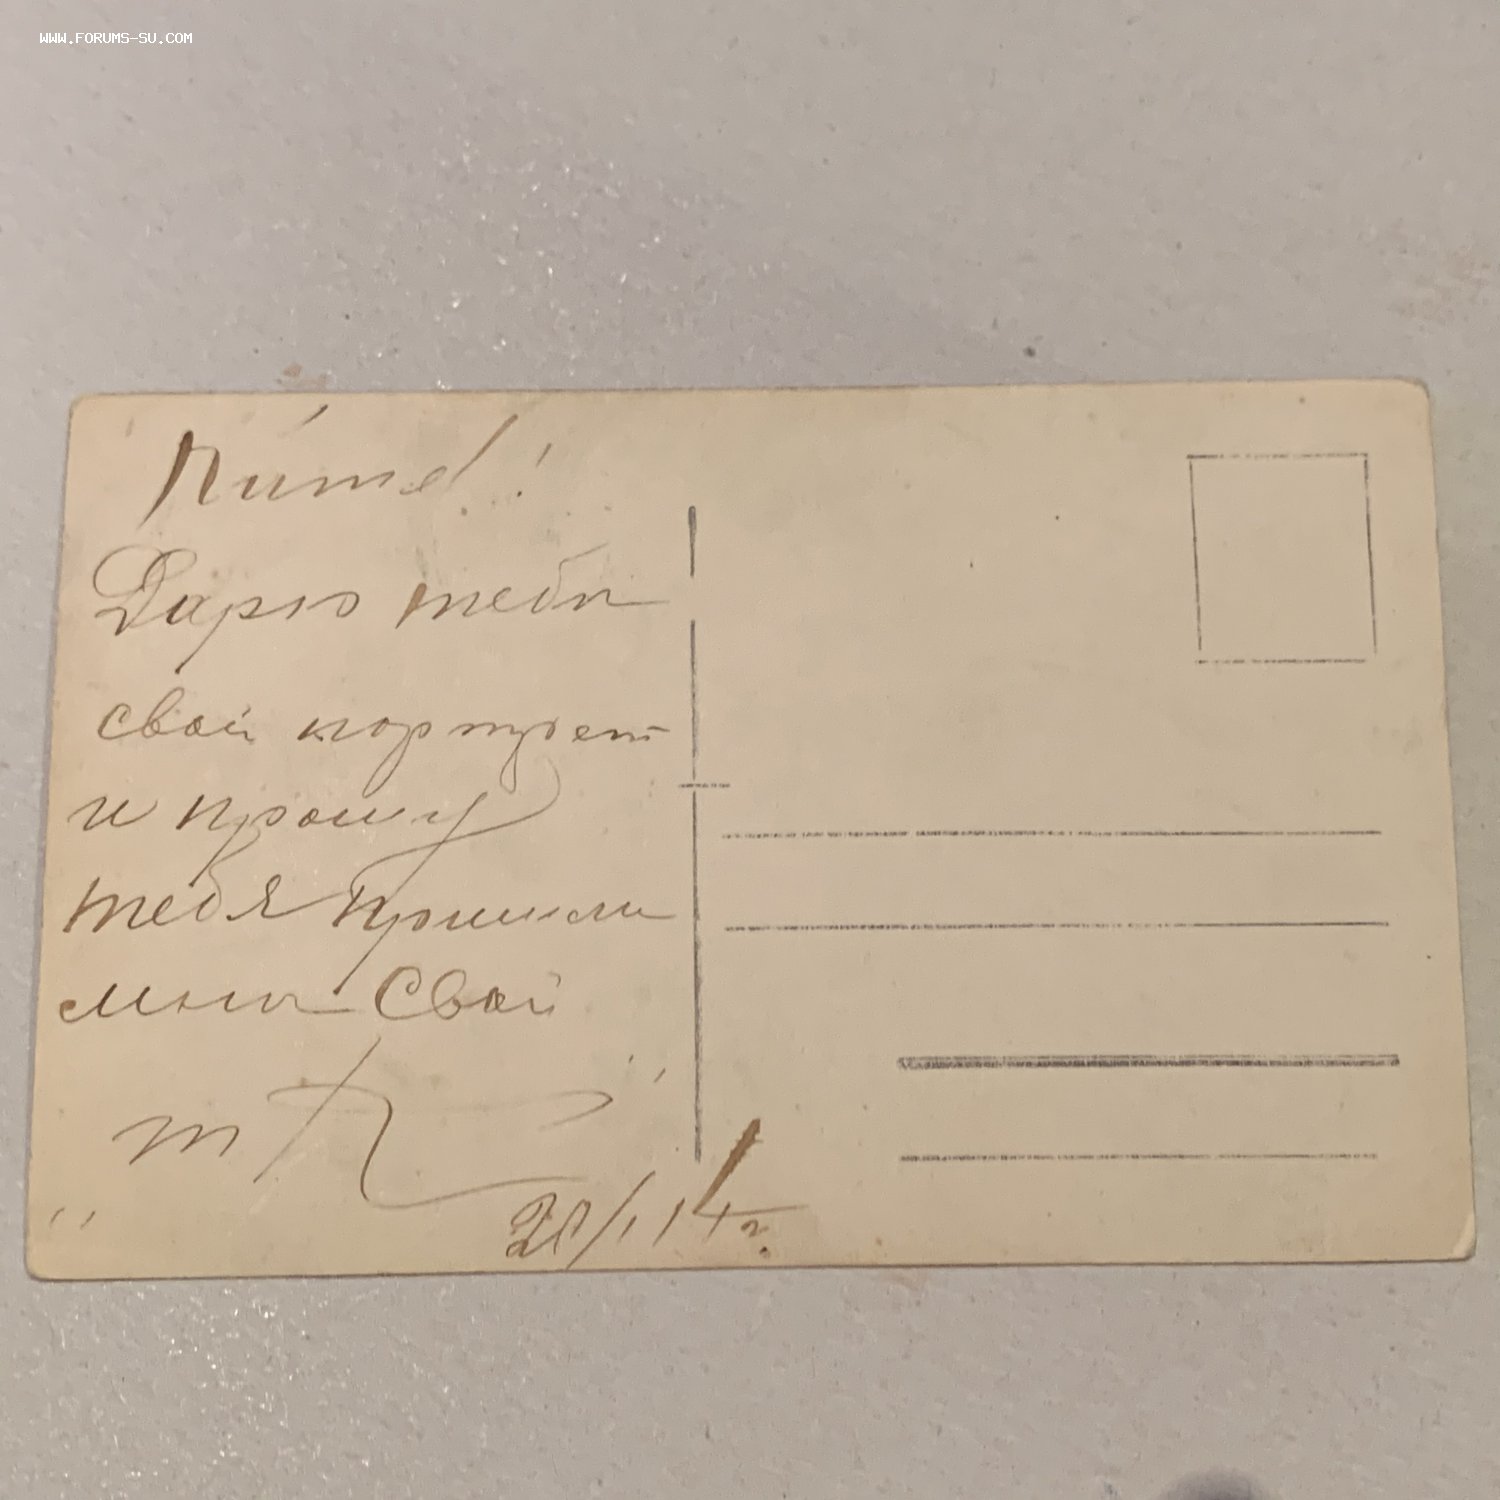 WWW.FORUMS-SU.COM
Дарю тебѣ
свой портрет
и прошу
тебя пришли
мнѣ Свой
20/I 14 г.